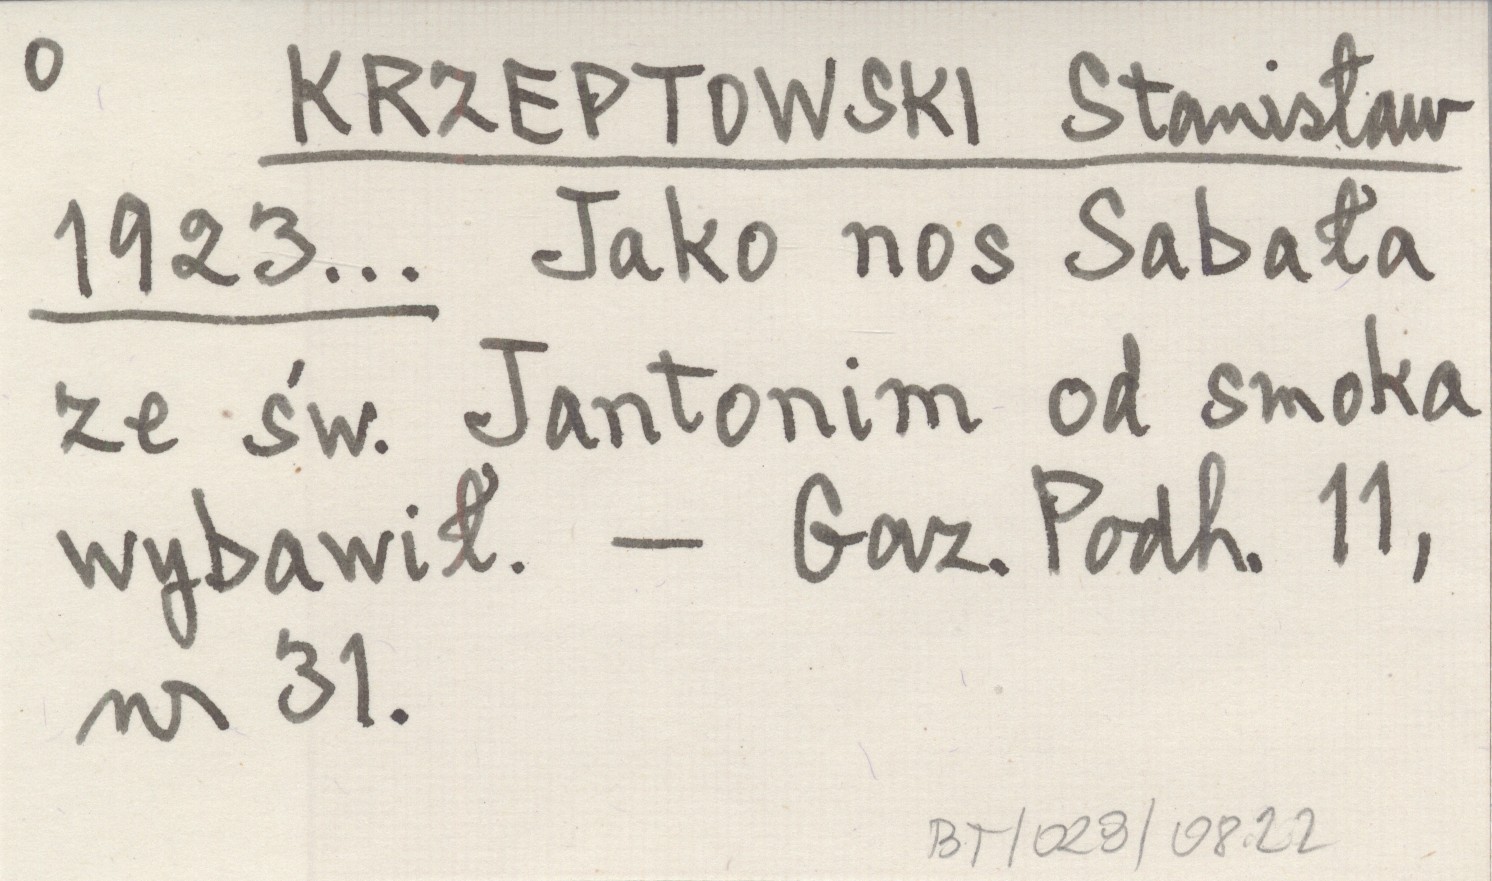 o KRZEPTOWSKI Stanisław
1923... Jako nos Sabała
ze św. Jantonim od smoka
wybawił. — Gaz. Podh. 11,
nr 31.
BT/023/0822